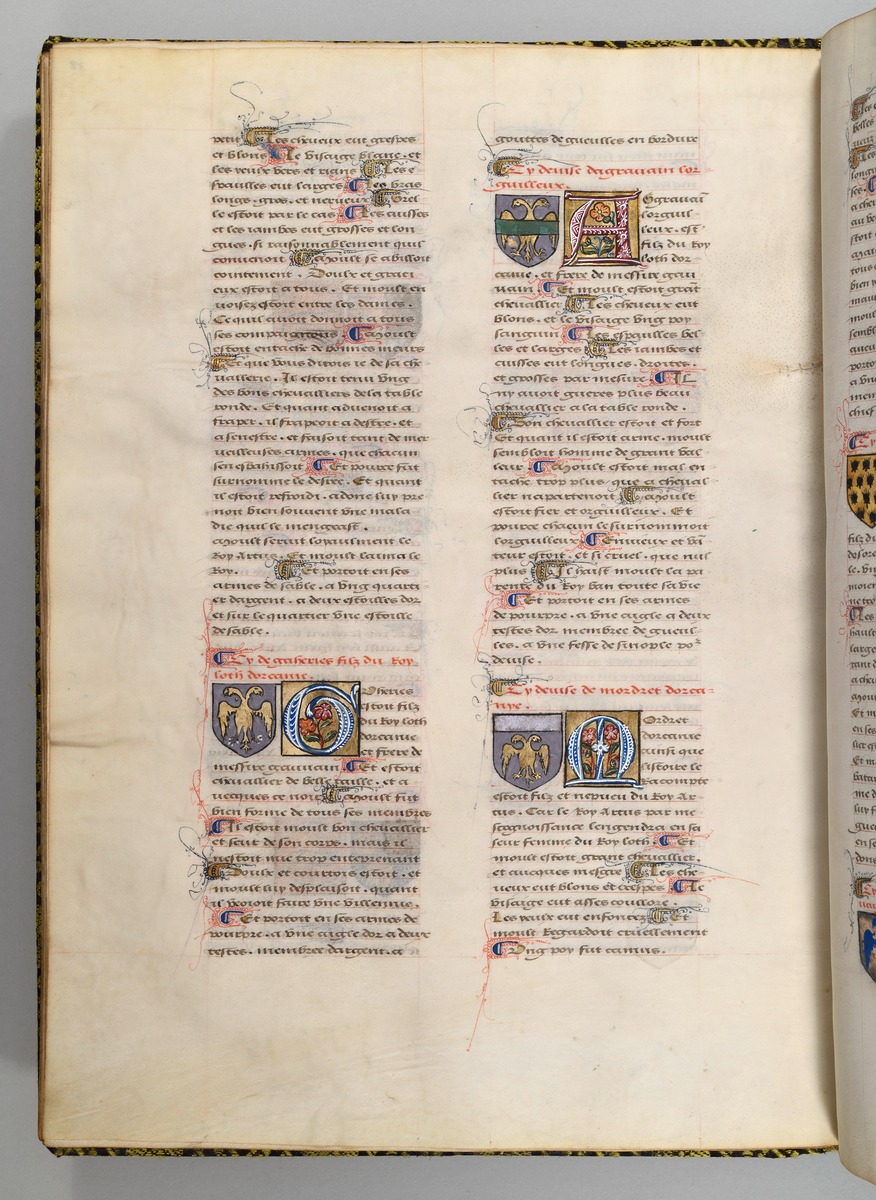 petit Les cheueux eut crespes
et blons Le visaige blanc. et
les yeulx vers et rians Les e
spaulles eut larges Les bras
longs. gros. et nerueux Grel
le estoit par le cas Les cuisses
et les iambes eut grosses et lon
gues. si raisonnablement quil
conuenoit Et moult se abilloit
cointement. Doulx et graci
eux estoit a tous. Et moult en
uoisez estoit entre les dames.
Ce quil auoit donnoit a tous
ses compaignons Et moult
estoit entache de bonnes meurs
Et que vous diroie ie de sa che
uallerie. Il estoit tenu vng
des bons cheualliers de la table
ronde. Et quant aduenoit a
fraper. il frapoit a destre. et
a senestre. et faisoit tant de mer
ueilleuses armes. que chacun
sen esbahissoit Et pource fut
surnomme le desree. Et quant
il estoit refroidi. adonc luy pre
noit bien souuent vne mala
die quil le mengeast.
Moult seruit loyaulment le
Roy Artus. Et moult laima le
Roy. Et portoit en ses
armes de sable. a vng quarti
er dargent. a deux estoilles dor
et sur le quartier vne estoille
de sable.
Cy de gaheries filz du Roy
loth dorcanie.
Gheries
estoit filz
du Roy loth
dorcanie
et frere de
messire gauuain Et estoit
cheuallier de belle taille. et a
uecques ce noir Et moult fut
bien forme de tous ses membres
Il estoit moult bon cheuallier
et seur de son corps. mais il
nestoit mie trop entreprenant
Doulx et courtois estoit. et
moult luy desplaisoit. quant
il veoit faire vne villennie.
Et portoit en ses armes de
pourpre. a vne aigle dor a deux
testes. membree dargent. et
gouttes de gueulles en bordure
Cy deuise dagrauain lor
guilleux.
Agrauain
lorguil
leux. est
filz du Roy
loth dor
canie. et frere de messire gau
uain. Et moult estoit grant
cheuallier Les cheueux eut
blons. et le visaige vng poy
sanguin Les espaulles bel
les et larges Les iambes et
cuisses eut longues. droites.
et grosses par mesure Il
ny auoit gueres plus beau
cheuallier a la table ronde.
Bon cheuallier estoit et fort
Et quant il estoit arme. moult
sembloit homme de grant val
leur. Et moult estoit mal en
tache trop plus. que a cheual
lier napartenoit Et moult
estoit fier et orguilleux. Et
pource chacun le surnommoit
lorguilleux Enuieux et van
teur estoit. et si cruel. que nul
plus Il haist moult la pa
rente du Roy ban toute sa vie
Et portoit en ses armes
de pourpre. a vne aigle a deux
testes dor membree de gueul
les. a vne fesse de sinople por
deuise.
Cy deuise de mordret dorca=
nye.
Mordret
dorcanie
ainsi que
listoire le
Racompte
estoit filz et nepueu du Roy Ar
tus. Car le Roy Artus par me
scognoissance lengendra en sa
seur femme du Roy loth. Et
moult estoit grant cheuallier.
et auecques mesgre Les che
ueux eut blons et crespes Le
visaige eut asses coullore.
Les yeux eut enfoncez Et
moult Regardoit cruellement
Vng poy fut camus.